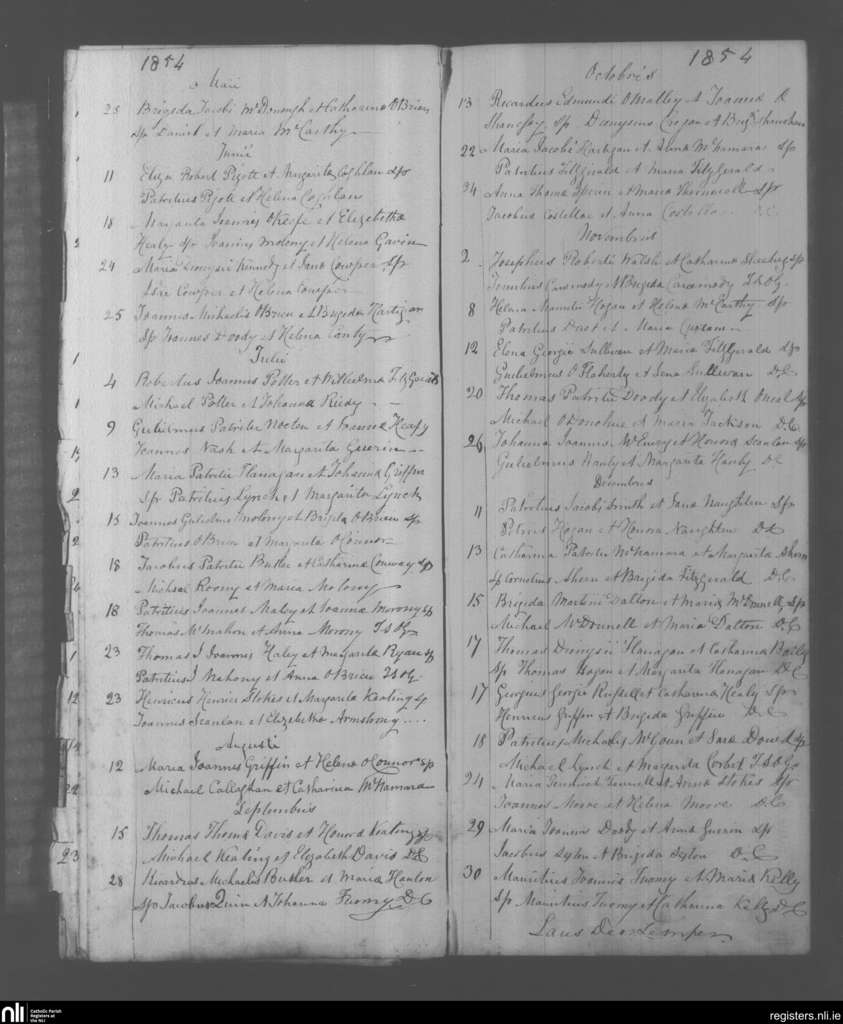 1854
Maii
25 Brigeda Jacobi McDonough et Catharina OBrien
Sp Daniel et Maria McCarthy
Junii
11 Eliza Robert Pigott et Margarita Coghlan Sps
Patritius Pigott et Helena Coghlan
18 Margarita Joannes OKeefe et Elizabetha
Healy Sps Joannes Molony et Helena Gavin
24 Maria Dionysii Kennedy et Jane Cowper Sps
Cowper et Helena Cowper
25 Joannes Michaelis OBrien et Brigeda Hartigan
Sp Joannes Doody et Helena Canty
Julii
4 Robertus Joannes Potter et Wilhelmina
Michael Potter et Johanna Reidy
9 Gulielmus Patritii Nocton et Joanna Heafy
Joannes Nash et Margarita Guerin
13 Maria Patritii Flanagan et Johanna Griffin
Sps Patritius Lynch et Margarita Lynch
15 Joannes Gulielmi Molony et Brigida OBrien Sps
Patritius OBrien et Margarita OConnor
18 Jacobus Patritii Butler et Catharina Conway Sp
Michael Roony et Maria Molony
18 Patritius Joannes Haley et Joanna Morony Sp
Thomas McMahon et Anna Morony
23 Thomas J Joannes Haley et Margarita Ryan Sp
Patritius J Mahony et Anna OBrien
23 Henricus Henrici Stokes et Margarita Keating Sp
Joannes Scanlan et Elizabetha Armstrong
Augusti
12 Maria Joannes Griffin et Helena OConnor Sp
Michael Callaghan et Catharina McNamara
Septembris
15 Thomas Thoma Davis et Honora Keating Sp
Michael Keating et Elizabeth Davis D.C
28 Ricardus Michaelis Butler et Maria Hanlon
Sp Jacobus Quin et Johanna Twomy D.C
1
1
2
2
1
12
22
23
1854
Octobris
13 Ricardus Edmundi OMalley et Joanna
Sp Dionysius Cregan et Brigi
22 Maria Jacobi Hartigan et Anna McNamara Sps
Patritius Fitzgerald et Maria FitzGerald
Anna Thoma et Maria Sps
Jacobus Costelloe et Anna Costelloe D.C.
Novembris
2 Josephus Roberti Walsh et Catharina Sheehy Sp
Carmody et Brigida Carmody
8 Helena Mauritii Hogan et Helena McCarthy Sp
Patritius et Maria
12 Elena Georgii Sullivan et Maria FitzGerald Sps
Gulielmus O Flaherty et Lena Sullivan D.C.
20 Thomas Patritii Doody et Elizabeth Oneal Sp
Michael ODonohue et Maria Jackson D.C
26 Johanna Joannes et Honora Scanlon Sp
Gulielmus Hanly et Margarita Hanly D C
Decembris
11 Patritius Jacobi Smith et Jana Naughten Sps
Petrus Hogan et Honora Naughten D.C
13 Catharina Patritii McNamara et Margarita Ahern
Sp Cornelius Ahern et Brigida Fitzgerald D.C.
15 Brigida Martini Dalton et Maria McDonnell Sp
Michael McDonnell et Maria Dalton D.C
17 Thomas Dionysii Flanagan et Catharina Bailly
Sp Thomas Hogan et Margarita Flanagan D.C
17 Georgius Georgii Russell et Catharina Healy Sps
Henricus Griffin et Brigida Griffin D.C
18 Patritius Michaelis McGoun et Sara Dowd Sp
Michael Lynch et Margarita Corbet
24 Maria Fennell et Anna Stokes Sps
Joannes Moore et Helena Moore D.C
29 Maria Joannes Doody et Anna Guerin Sps
Jacobus Sexton et Brigida Sexton D.C
30 Mauritius Joannis Twomy et Maria Kelly
Sp Mauritius Twomy et Catharina Kelly D.C
Laus Deo Semper
nli
Catholic Parish
Registers at
the NLI
registers.nli.ie